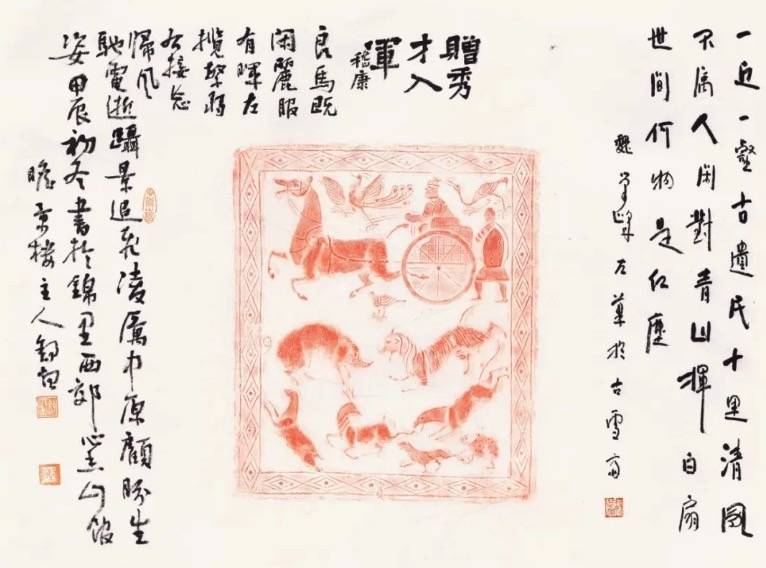 一丘一壑古遺民十里清風
不属人闲對青山揮白扇
世间何物是红塵
魏学峰左筆於古雪斋
贈秀
才入
軍
嵇康
良馬既
闲麗服
有暉左
攬繁弱
右接忘
歸風
馳電逝躡景追飛凌厲中原顧盼生
姿甲辰初冬書於錦里西郊山館
瞻京楼主人